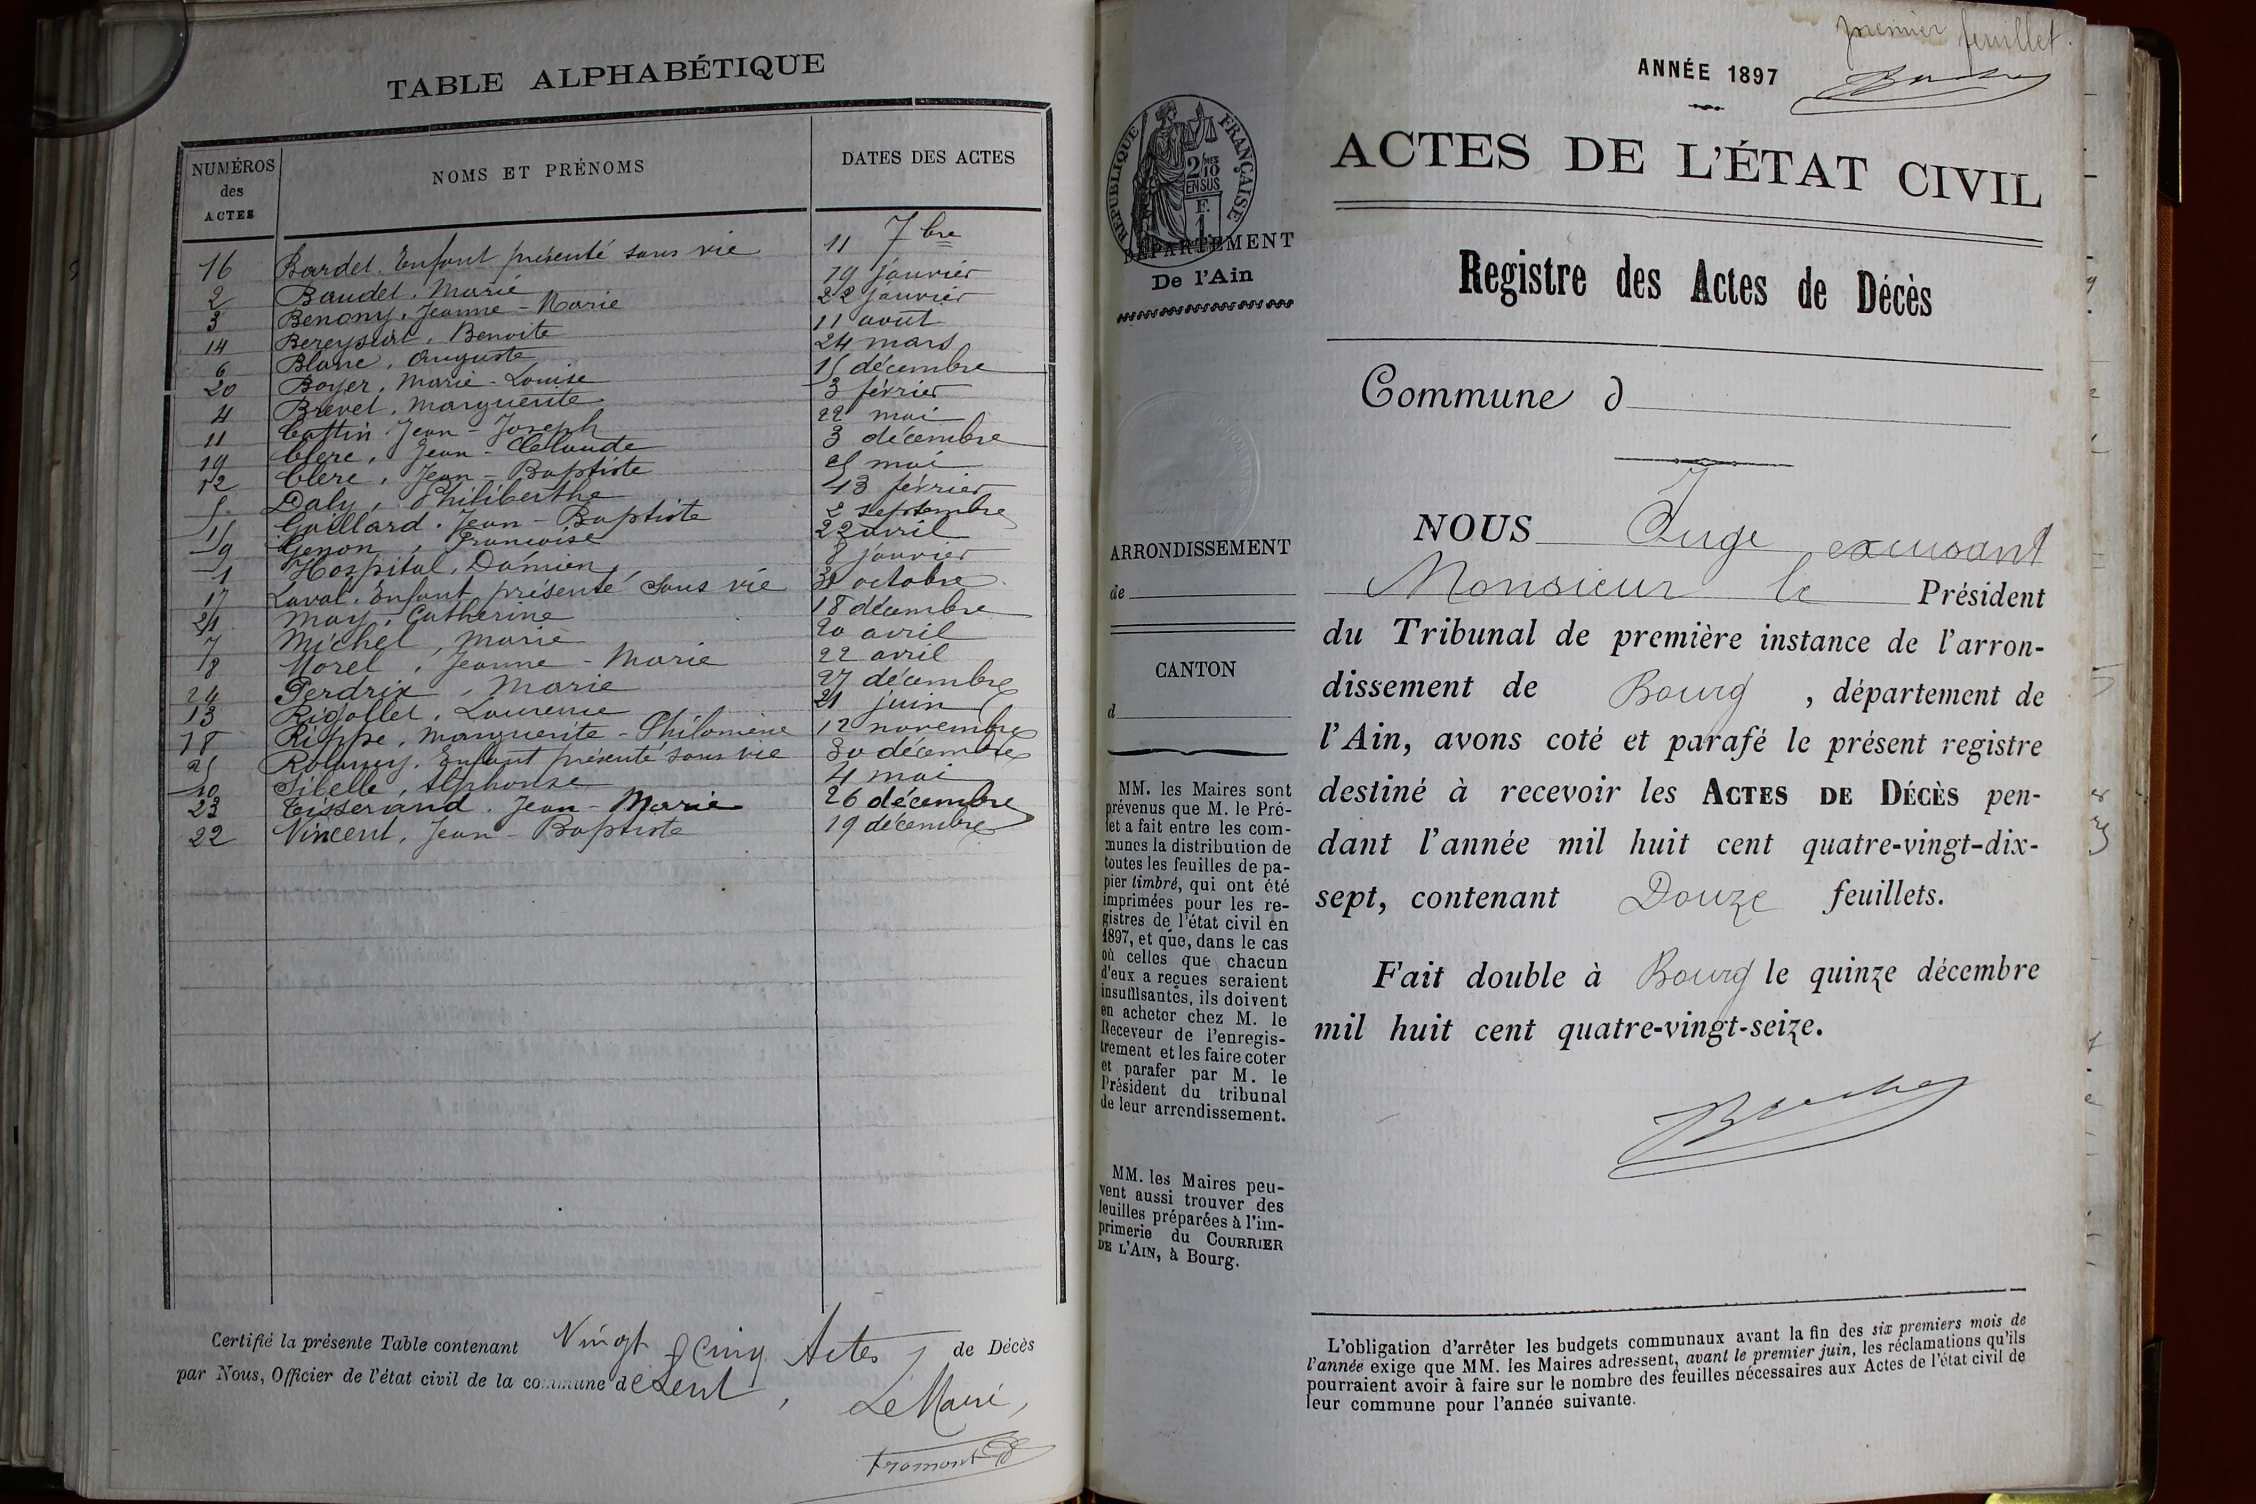 TABLE ALPHABÉTIQUE
NUMÉROS des ACTES
NOMS ET PRÉNOMS
DATES DES ACTES
16 Bardet. Enfant présenté sans vie 11 7bre
2 Baudet. Marie 19 janvier
3 Benony. Jeanne-Marie 22 janvier
14 Benoite 11 août
6 Blanc, Auguste 24 mars
20 Boyer, Marie-Louise 15 décembre
4 Brevet, Marguerite 3 février
11 Cottin Jean-Joseph 22 mai
19 Clerc, Jean-Claude 3 décembre
12 Clerc, Jean-Baptiste mai
5 Daly, Philiberthe 13 février
15 Gaillard. Jean-Baptiste 2 septembre
9 Genon, Françoise 22 avril
1 Hospital, Damien 8 janvier
17 Laval. Enfant présenté sans vie 31 octobre
21 May, Catherine 18 décembre
7 Michel, Marie 20 avril
8 Morel, Jeanne-Marie 22 avril
24 Perdrix, Marie 27 décembre
13 Rigollet, Laurence 21 juin
18 Rippe, Marguerite-Philomène 12 novembre
25 Enfant présenté sans vie 30 décembre
10 Sibelle, Alphonse 4 mai
23 Tisserand. Jean-Marie 26 décembre
22 Vincent, Jean-Baptiste 19 décembre
Certifié la présente Table contenant Vingt cinq Actes de Décès
par Nous, Officier de l'état civil de la commune de Lent,
Le Maire,
Fromont
premier feuillet.
ANNÉE 1897
ACTES DE L'ÉTAT CIVIL
Registre des Actes de Décès
Commune d
RÉPUBLIQUE FRANÇAISE
2/10 EN SUS
F.
1
DÉPARTEMENT
De l'Ain
ARRONDISSEMENT
de
CANTON
d
MM. les Maires sont
prévenus que M. le Pré-
fet a fait entre les com-
munes la distribution de
toutes les feuilles de pa-
pier timbré, qui ont été
imprimées pour les re-
gistres de l'état civil en
1897, et que, dans le cas
où celles que chacun
d'eux a reçues seraient
insuffisantes, ils doivent
en acheter chez M. le
Receveur de l'enregis-
trement et les faire coter
et parafer par M. le
Président du tribunal
de leur arrondissement.
MM. les Maires peu-
vent aussi trouver des
feuilles préparées à l'im-
primerie du COURRIER
DE L'AIN, à Bourg.
NOUS Juge excusant
Monsieur le Président
du Tribunal de première instance de l'arron-
dissement de Bourg, département de
l'Ain, avons coté et parafé le présent registre
destiné à recevoir les ACTES DE DÉCÈS pen-
dant l'année mil huit cent quatre-vingt-dix-
sept, contenant Douze feuillets.
Fait double à Bourg le quinze décembre
mil huit cent quatre-vingt-seize.
L'obligation d'arrêter les budgets communaux avant la fin des six premiers mois de
l'année exige que MM. les Maires adressent, avant le premier juin, les réclamations qu'ils
pourraient avoir à faire sur le nombre des feuilles nécessaires aux Actes de l'état civil de
leur commune pour l'année suivante.